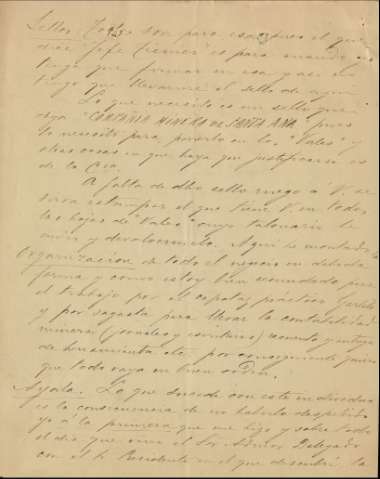 Sellos. Todos son para esa, pues el que
dice "Jefe Tecnico" es para cuando yo
tenga que firmar en esa y así no
tengo que llevarme el sello de aquí.
Lo que necesito es un sello que
diga "COMPAÑIA MINERA DE SANTA ANA" pues
lo necesito para ponerlo en los "Vales" y
otras cosas en que haya que justificarse es
de la Cia.
A falta de dho sello ruego á V. se
sirva estampar el que tiene V. en todas
las hojas de "Vales" cuyo talonario le
envio y devolvermelo. Aquí he montado la
Organizacion de todo el negocio en debida
forma y como estoy bien secundado para
el trabajo por el capataz práctico
y por para llevar la contabilidad
minera (jornales y escrituras) recuento y entrega
de herramienta etc. por consiguiente
que todo vaya en buen orden.
Ayala. Lo que sucede con este individuo
es la consecuencia de no haberlo despedido
yo á la primera que me hizo y sobre todo
el dia que vino el Sor Admor Delegado
con el Sr. Presidente en el que descubrí la